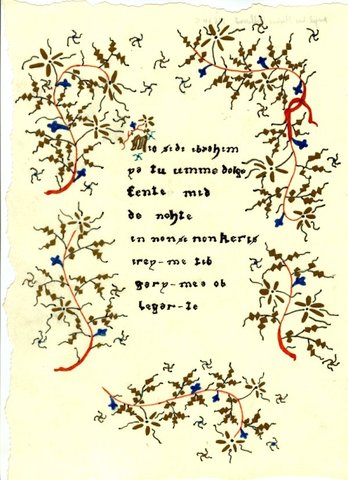 Mio sidi ibrahim
ya tu umme dolge
fente mib
de nohte
in non se non keris
irey-me tib
gary-me a ob
legar-te